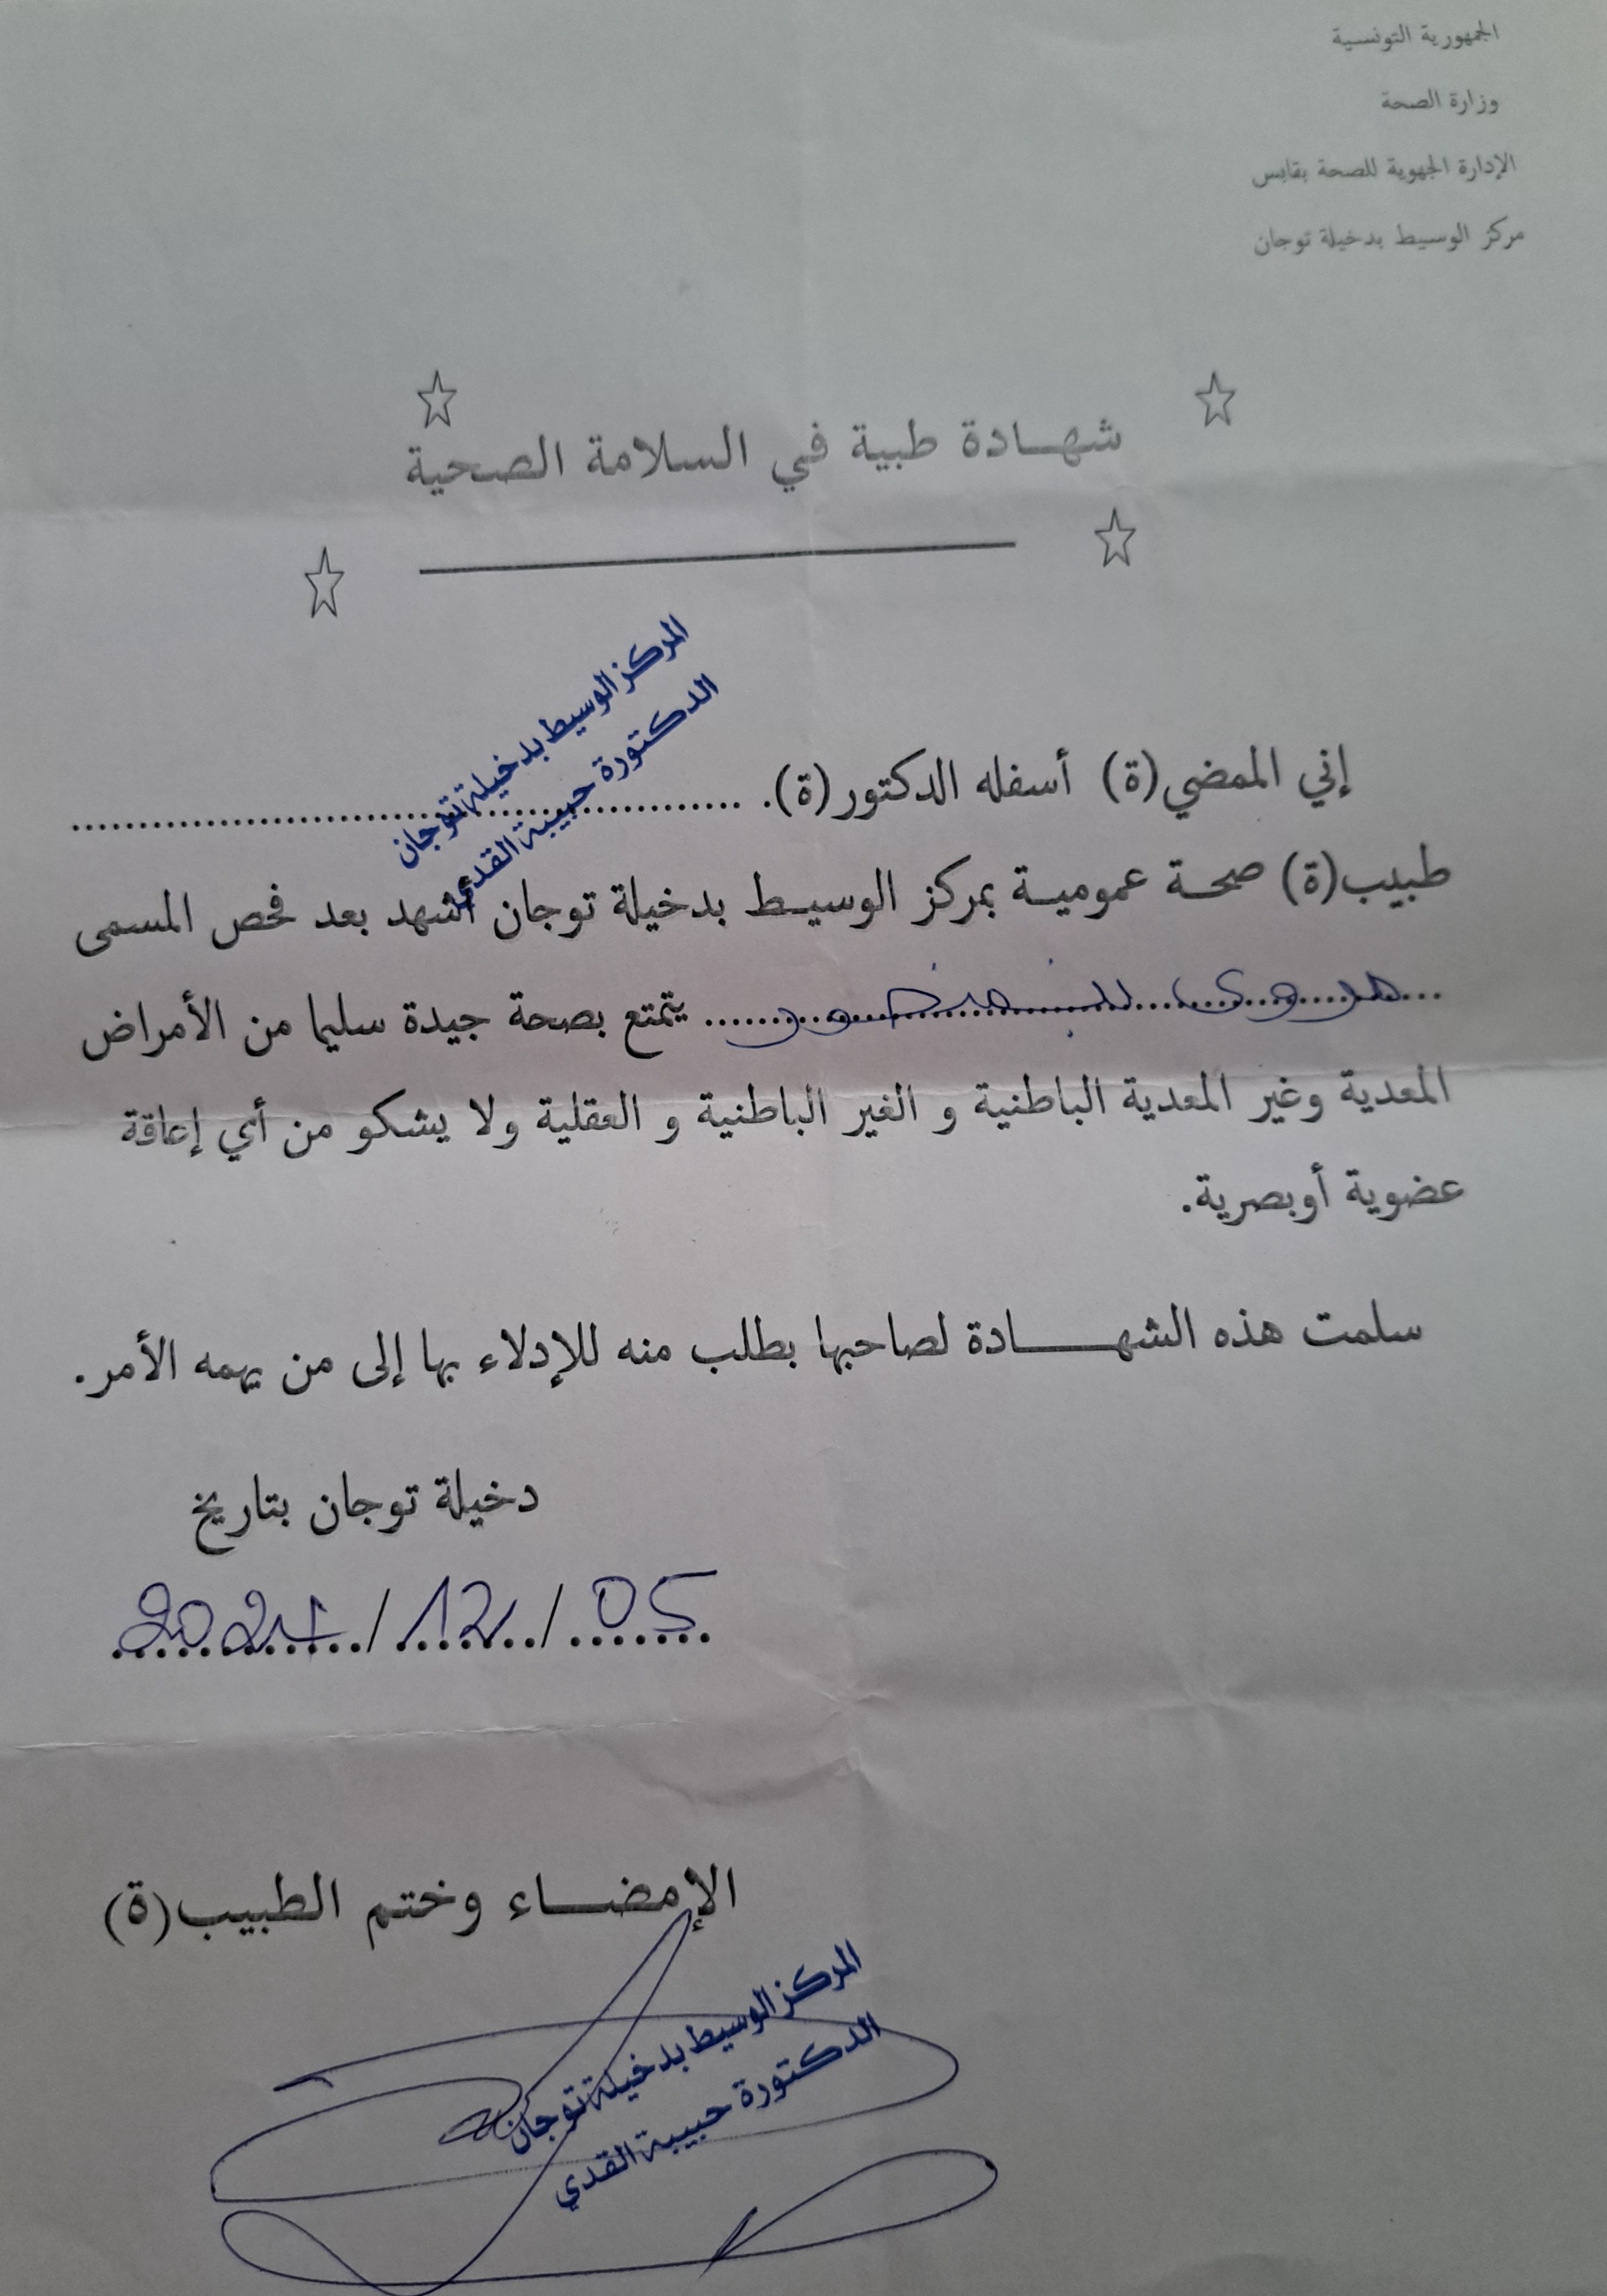 الجمهورية التونسية
وزارة الصحة
الإدارة الجهوية للصحة بقابس
مركز الوسيط بدخيلة توجان
شهادة طبية في السلامة الصحية
المركز الوسيط بدخيلة توجان
الدكتورة حبيبة القدي
إني الممضي(ة) أسفله الدكتور(ة). ........................................
طبيب(ة) صحة عمومية بمركز الوسيط بدخيلة توجان أشهد بعد فحص المسمى
مروى بن منصور يتمتع بصحة جيدة سليما من الأمراض
المعدية وغير المعدية الباطنية و الغير الباطنية و العقلية ولا يشكو من أي إعاقة
عضوية أوبصرية.
سلمت هذه الشهادة لصاحبها بطلب منه للإدلاء بها إلى من يهمه الأمر.
دخيلة توجان بتاريخ
2024/12/05
الإمضاء وختم الطبيب(ة)
المركز الوسيط بدخيلة توجان
الدكتورة حبيبة القدي